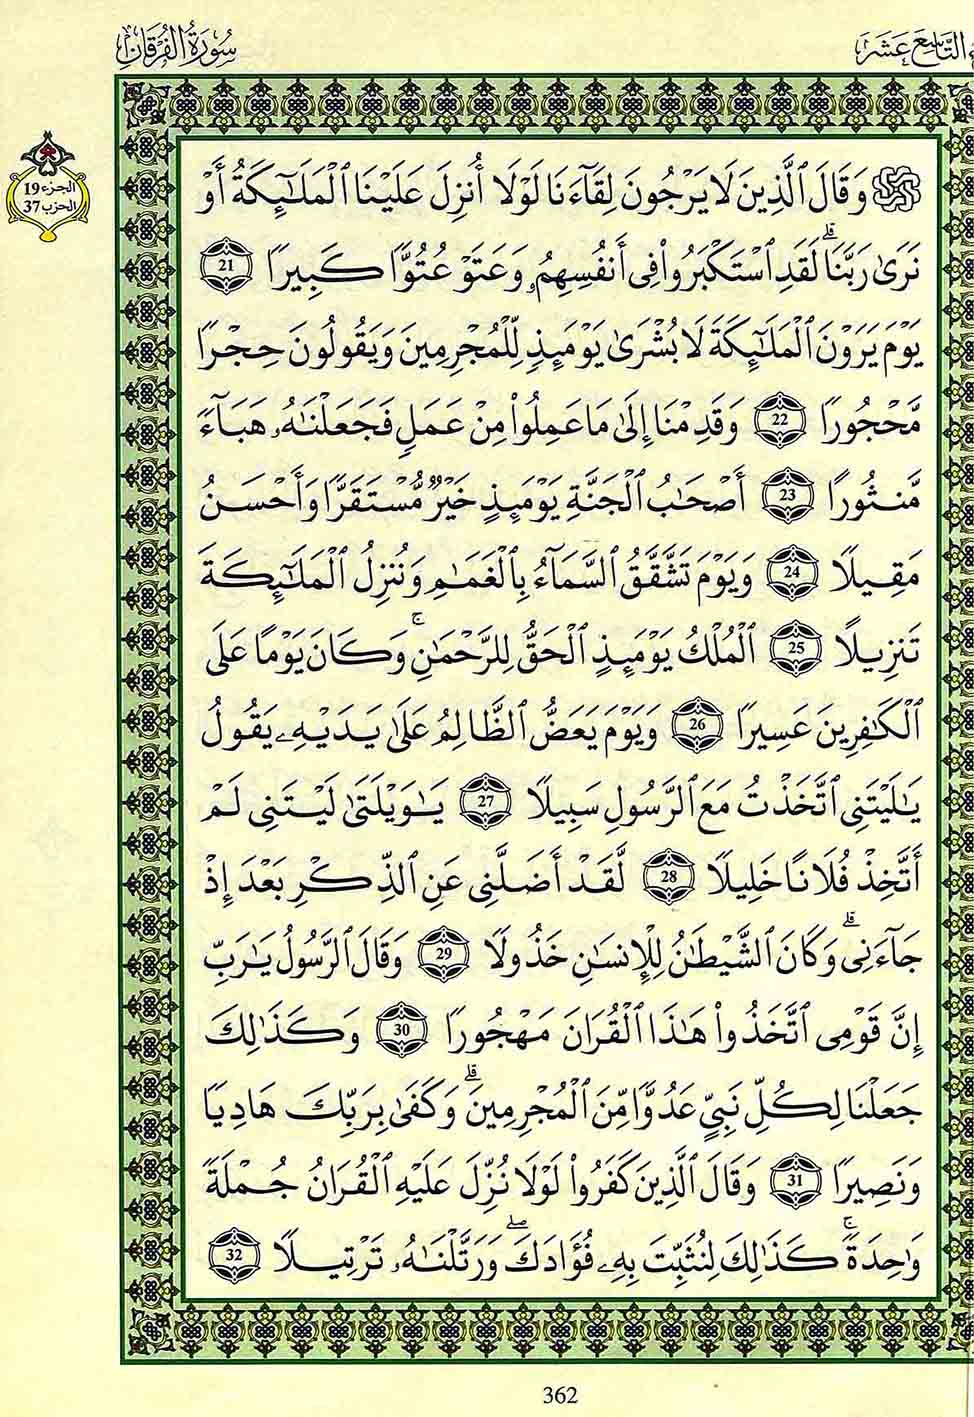 التَّاسِعَ عَشَرَ
سُورَةُ الفُرْقَانِ
الجزء 19
الحزب 37
وَقَالَ ٱلَّذِينَ لَا يَرْجُونَ لِقَآءَنَا لَوْلَا أُنزِلَ عَلَيْنَا ٱلْمَلَٰٓئِكَةُ أَوْ
نَرَىٰ رَبَّنَاۗ لَقَدِ ٱسْتَكْبَرُوا۟ فِى أَنفُسِهِمُۥ وَعَتَوْ عُتُوًّا كَبِيرًا 21
يَوْمَ يَرَوْنَ ٱلْمَلَٰٓئِكَةَ لَا بُشْرَىٰ يَوْمَئِذٍ لِّلْمُجْرِمِينَ وَيَقُولُونَ حِجْرًا
مَّحْجُورًا 22 وَقَدِمْنَا إِلَىٰ مَا عَمِلُوا۟ مِنْ عَمَلٍ فَجَعَلْنَٰهُۥ هَبَآءً
مَّنثُورًا 23 أَصْحَٰبُ ٱلْجَنَّةِ يَوْمَئِذٍ خَيْرٌ مُّسْتَقَرًّا وَأَحْسَنُ
مَقِيلًا 24 وَيَوْمَ تَشَّقَّقُ ٱلسَّمَآءُ بِٱلْغَمَٰمِ وَنُنزِلُ ٱلْمَلَٰٓئِكَةَ
تَنزِيلًا 25 ٱلْمُلْكُ يَوْمَئِذٍ ٱلْحَقُّ لِلرَّحْمَٰنِۚ وَكَانَ يَوْمًا عَلَى
ٱلْكَٰفِرِينَ عَسِيرًا 26 وَيَوْمَ يَعَضُّ ٱلظَّالِمُ عَلَىٰ يَدَيْهِۦ يَقُولُ
يَٰلَيْتَنِى ٱتَّخَذْتُ مَعَ ٱلرَّسُولِ سَبِيلًا 27 يَٰوَيْلَتَىٰ لَيْتَنِى لَمْ
أَتَّخِذْ فُلَانًا خَلِيلًا 28 لَّقَدْ أَضَلَّنِى عَنِ ٱلذِّكْرِ بَعْدَ إِذْ
جَآءَنِىۗ وَكَانَ ٱلشَّيْطَٰنُ لِلْإِنسَٰنِ خَذُولًا 29 وَقَالَ ٱلرَّسُولُ يَٰرَبِّ
إِنَّ قَوْمِى ٱتَّخَذُوا۟ هَٰذَا ٱلْقُرَانَ مَهْجُورًا 30 وَكَذَٰلِكَ
جَعَلْنَا لِكُلِّ نَبِىٍّ عَدُوًّا مِّنَ ٱلْمُجْرِمِينَۗ وَكَفَىٰ بِرَبِّكَ هَادِيًا
وَنَصِيرًا 31 وَقَالَ ٱلَّذِينَ كَفَرُوا۟ لَوْلَا نُزِّلَ عَلَيْهِ ٱلْقُرَانُ جُمْلَةً
وَٰحِدَةًۚ كَذَٰلِكَ لِنُثَبِّتَ بِهِۦ فُؤَادَكَۖ وَرَتَّلْنَٰهُۥ تَرْتِيلًا 32
362